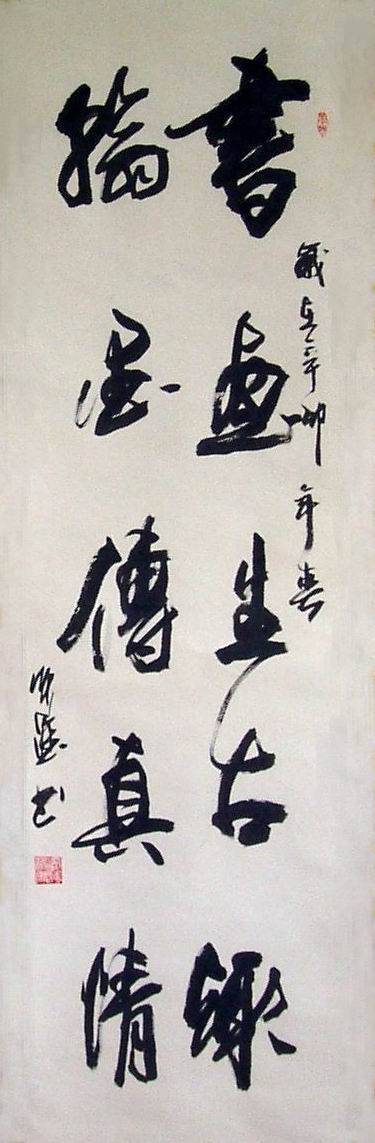 歲在辛卯年春
書畫生古趣
翰墨傳真情